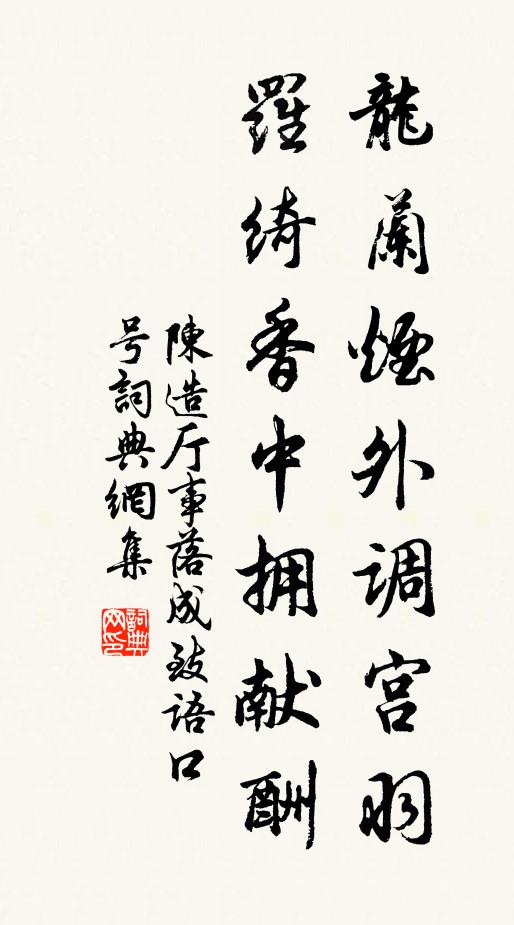 龍蘭煙外调宫羽
羅绮香中拥献酬
陳造厅事落成致语口
号詞典網集
詞典
网印